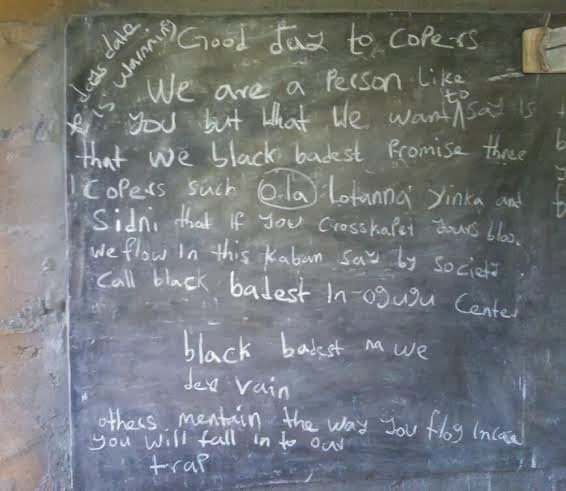 days date
is warning
Good day to Copers
We are a Person like
to
you but What We Want say is
that we black badest Promise three
Copers such Ola Lotanna Yinka and
Sidni that if you Crosskapet yours bloo
we flow In this Kaban say by Societz
Call black badest In-ogugu Center
black badest na we
dey vain
others mentain the way you flog Incase
you will fall in to our
trap